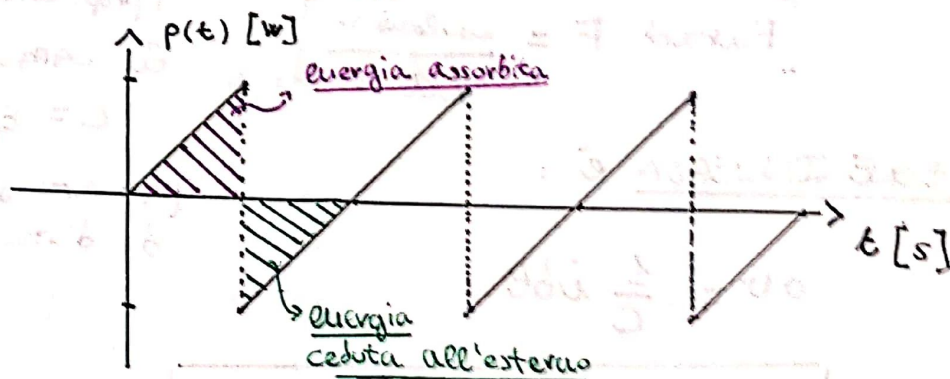 p(t) [W]
energia assorbita
t [s]
energia
ceduta all'esterno